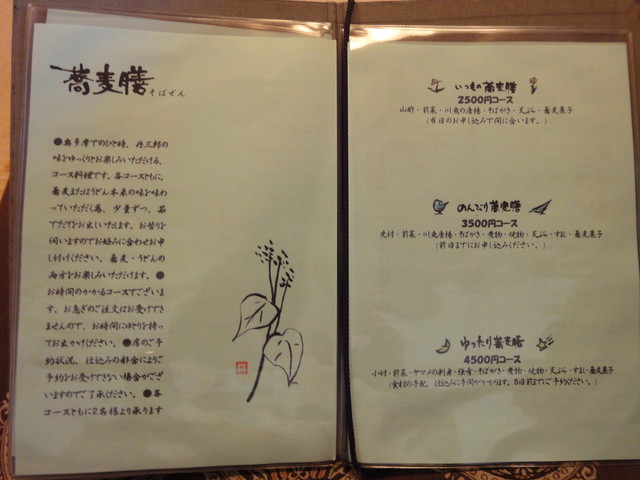 蕎麦膳
そばぜん
●奥多摩でのひと時、丹三郎の
味をゆっくりとお楽しみいただける、
コース料理です。各コースともに、
蕎麦またはうどん本来の味を味わ
っていただく為、少量ずつ、茹
でたてをお出しいたします。お替りを
伺いますのでお好みに合わせお申
し付けください。蕎麦・うどんの
両方をお楽しみいただけます。●
お時間のかかるコースでございま
す。お急ぎのご注文はお受けでき
ませんので、お時間にゆとりを持っ
てお出かけください。●席のご予
約状況、仕込みの都合によりご
予約をお受けできない場合がござ
いますのでご了承ください。●各
コースともに2名様より承ります
いつもの蕎麦膳
2500円コース
前菜・川魚の唐揚・そばがき・天ぷら・蕎麦菓子
(当日のお申し込みで間に合います。)
のんびり蕎麦膳
3500円コース
先付・前菜・川魚唐揚・そばがき・煮物・焼物・天ぷら・すし・蕎麦菓子
(前日までにお申し込みください。)
ゆったり蕎麦膳
4500円コース
小付・前菜・ヤマメの刺身・強肴・そばがき・煮物・焼物・天ぷら・すし・蕎麦菓子
(食材の手配、仕込みに手間がかかります。5日前までにご予約ください。)